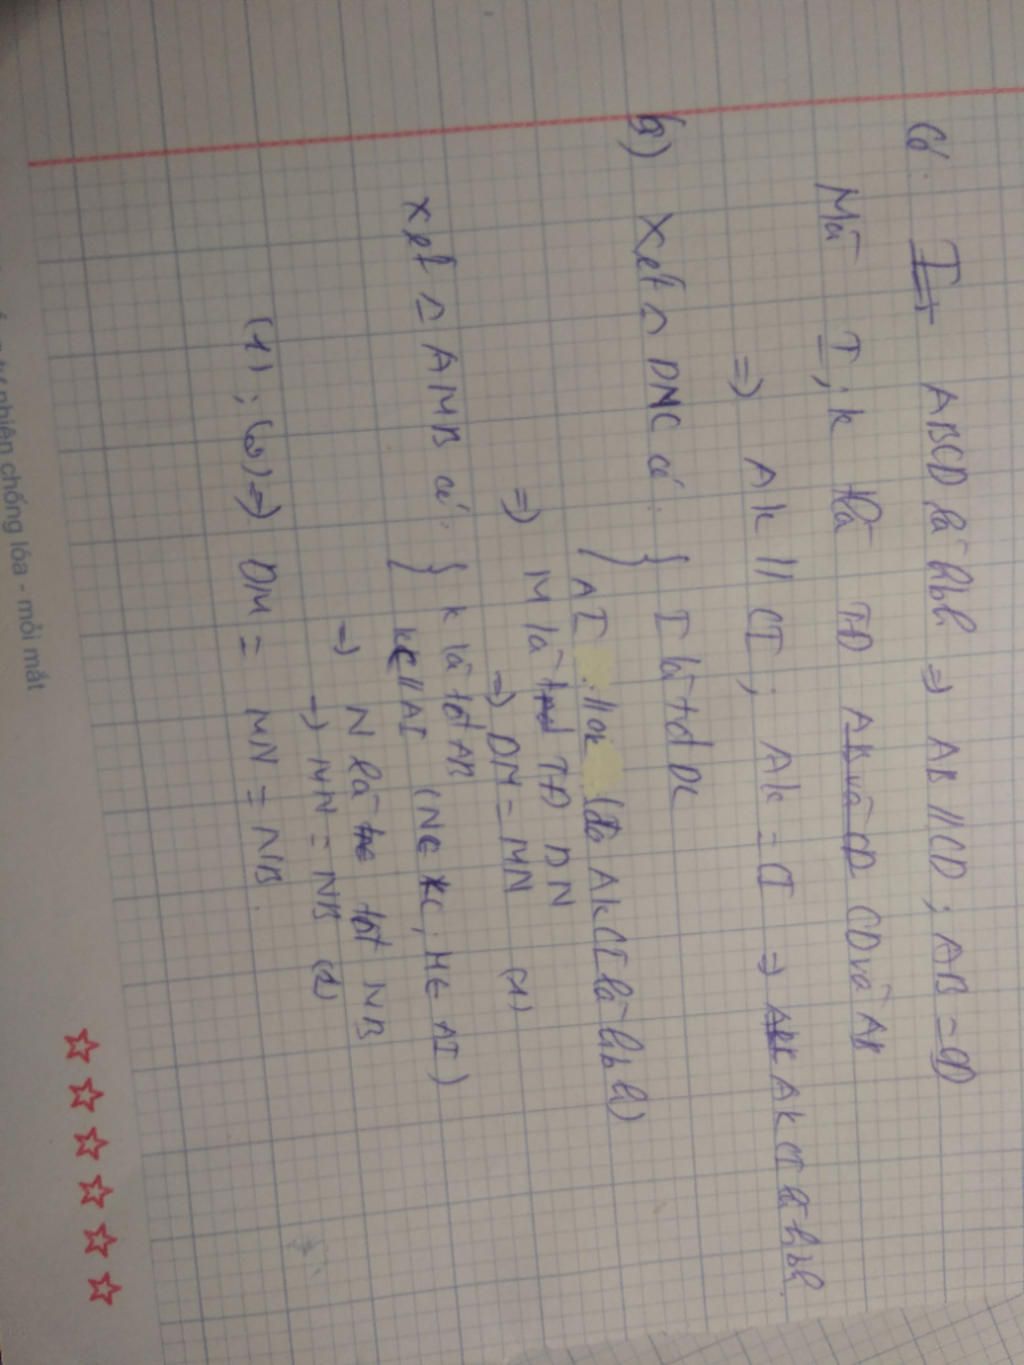 Có: ABCD là hbh => AB // CD ; AB = CD
Mà I ; K là TĐ CD và AB
=> AK // CI ; AK = CI => AKCI là hbh
b) Xét △ DNC có: { I là tđ DC
AI // CK (do AKCI là hbh)
=> M là TĐ DN
=> DM = MN (1)
Xét △ AMB có: { K là tđ AB
KC // AI (N ∈ KC, M ∈ AI)
=> N là tđ MB
=> MN = NB (2)
(1) ; (2) => DM = MN = NB
nhiên chống lóa - mỏi mắt